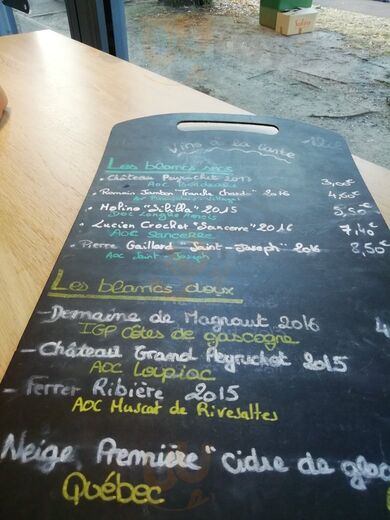 Vins à la carte
Les blancs secs
• Château Peyruchet 2017 3,00€
AOC Bordeaux
• Romain Jambon "Tranche Chardo" 2016 4,00€
• Molino "Sibilla" 2015 5,50€
• Lucien Crochet "Sancerre" 2016 7,40€
AOC Sancerre
• Pierre Gaillard "Saint-Joseph" 2016 8,50€
AOC Saint-Joseph
Les blancs doux
- Domaine de Magnaut 2016
IGP Côtes de gascogne
- Château Grand Peyruchet 2015
AOC Loupiac
- Ferrer Ribière 2015
AOC Muscat de Rivesaltes
Neige Première" Cidre de glac
Québec